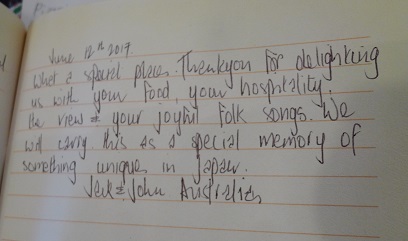 June 12th 2017
What a special place. Thankyou for delighting
us with your food, your hospitality,
the view & your joyful folk songs. We
will carry this as a special memory of
something unique in Japan.
& John Australia